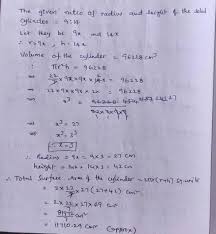 The given ratio of radius and height of the solid
cylinder = 9:14
Let they be 9x and 14x
∴ r=9x , h=14x
Volume of the cylinder = 96228 cm³
∴ πr²h = 96228
⇒ 22/7 × 9x × 9x × 14x = 96228
⇒ 22 × 9x × 9x × 2x = 96228
⇒ x³ =
⇒ x³ = 27
⇒ x³ = 3³
∴ x=3
∴ Radius = 9x = 9×3 = 27 cm
∴ Height = 14x = 14×3 = 42 cm
∴ Total Surface area of the cylinder = 2πr(r+h) sq.unit
= 2× 22/7 ×27(27+42) cm²
= 2× 22/7 ×27×69 cm²
= 81972/7 cm²
= 11710.29 cm² (approx)